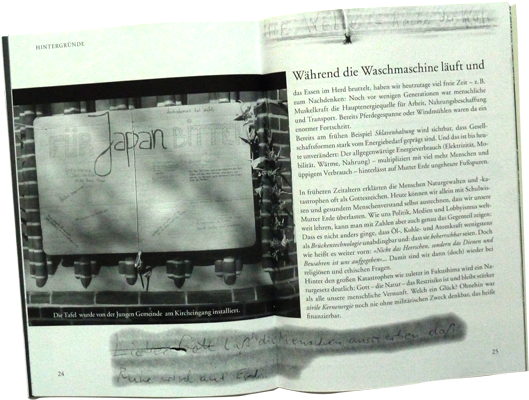 HINTERGRÜNDE
Japan
Die Tafel wurde von der Jungen Gemeinde am Kircheneingang installiert.
24
Während die Waschmaschine läuft und
das Essen im Herd brutzelt, haben wir heutzutage viel freie Zeit – z. B.
zum Nachdenken: Noch vor wenigen Generationen war menschliche
Muskelkraft die Hauptenergiequelle für Arbeit, Nahrungsbeschaffung
und Transport. Bereits Pferdegespanne oder Windmühlen waren da ein
enormer Fortschritt.
Bereits am frühen Beispiel Sklavenhaltung wird sichtbar, dass Gesell-
schaftsformen stark vom Energiebedarf geprägt sind. Und das ist bis heu-
te unverändert: Der allgegenwärtige Energieverbrauch (Elektrizität, Mo-
bilität, Wärme, Nahrung) – multipliziert mit viel mehr Menschen und
üppigem Verbrauch – hinterlässt auf Mutter Erde ungeheure Fußspuren.
In früheren Zeitaltern erklärten die Menschen Naturgewalten und -ka-
tastrophen oft als Gotteszeichen. Heute können wir allein mit Schulwis-
sen und gesundem Menschenverstand selbst ausrechnen, dass wir unsere
Mutter Erde überlasten. Wie uns Politik, Medien und Lobbyismus welt-
weit lehren, kann man mit Zahlen aber auch genau das Gegenteil zeigen:
Dass es nicht anders ginge, dass Öl-, Kohle- und Atomkraft wenigstens
als Brückentechnologie unabdingbar und: dass sie beherrschbar seien. Doch
wie heißt es weiter vorn: «Nicht das Herrschen, sondern das Dienen und
Bewahren ist uns aufgegeben»... Damit sind wir dann (doch) wieder bei
religiösen und ethischen Fragen.
Hinter den großen Katastrophen wie zuletzt in Fukushima wird ein Na-
turgesetz deutlich: Gott – die Natur – das Restrisiko ist und bleibt stärker
als alle unsere menschliche Vernunft. Welch ein Glück! Ohnehin war
zivile Kernenergie noch nie ohne militärischen Zweck denkbar, das heißt
finanzierbar.
25